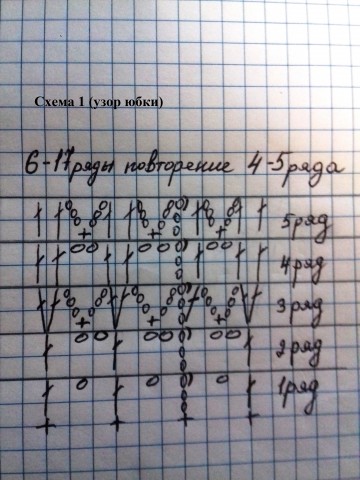 Схема 1 (узор юбки)
6-17 ряды повторение 4-5 ряда
5 ряд
4 ряд
3 ряд
2 ряд
1 ряд